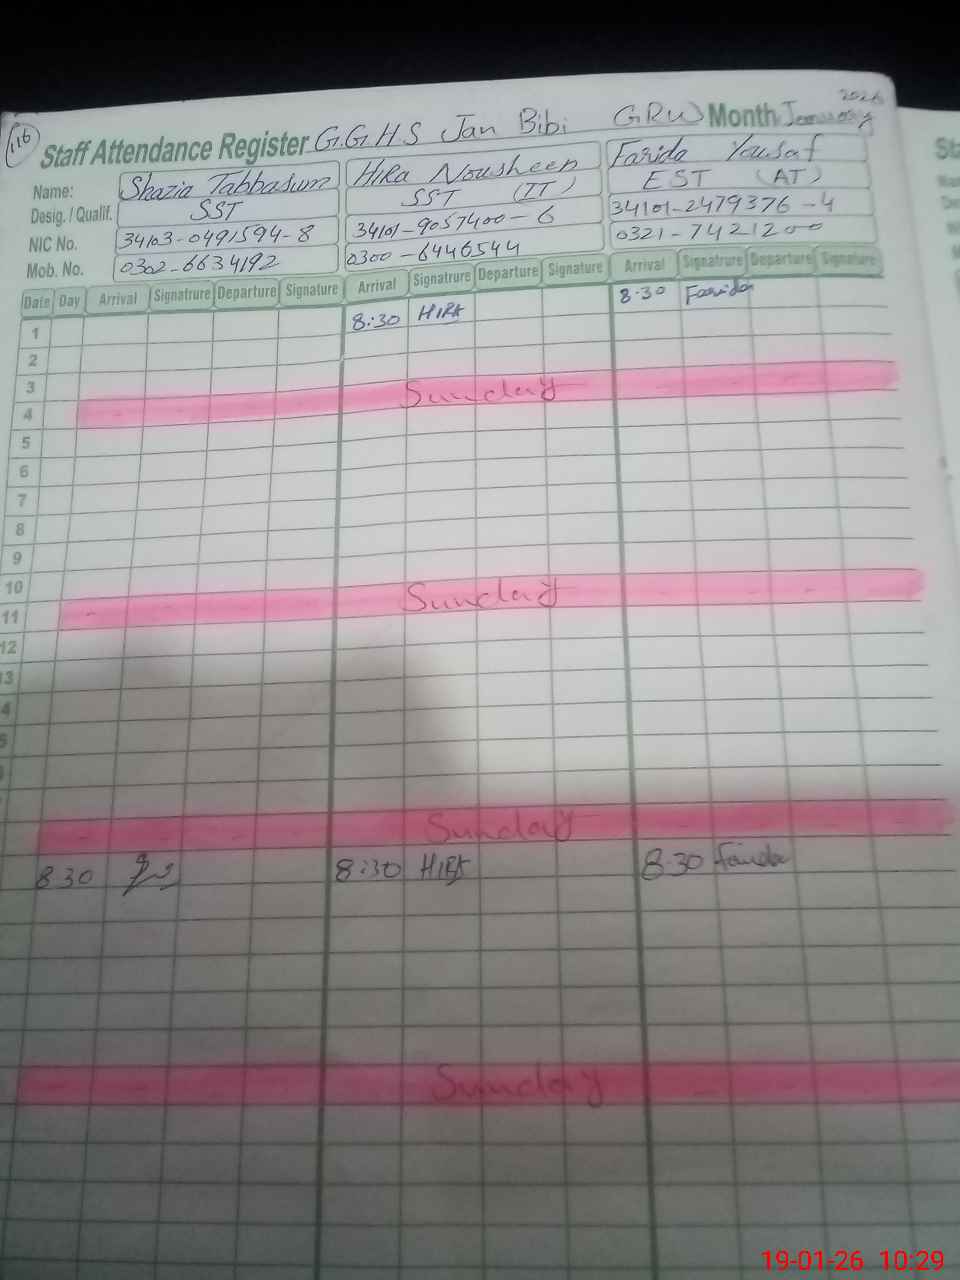 116
2026
Staff Attendance Register G.G.H.S Jan Bibi GRW Month January
Name: Shazia Tabbasum Hira Nousheen Farida Yousaf
Desig. / Qualif. SST SST (IT) EST (AT)
NIC No. 34103-0491594-8 34101-9057400-6 34101-2479376-4
Mob. No. 0302-6634192 0300-6446544 0321-7421200
Date Day Arrival Signatrure Departure Signature Arrival Signatrure Departure Signature Arrival Signatrure Departure Signature
1 8:30 HIRA 8.30 Farida
2
3
4 Sunday
5
6
7
8
9
10
11 Sunday
12
13
Sunday
8 30 8:30 HIRA 8.30 Farida
Sunday
19-01-26 10:29